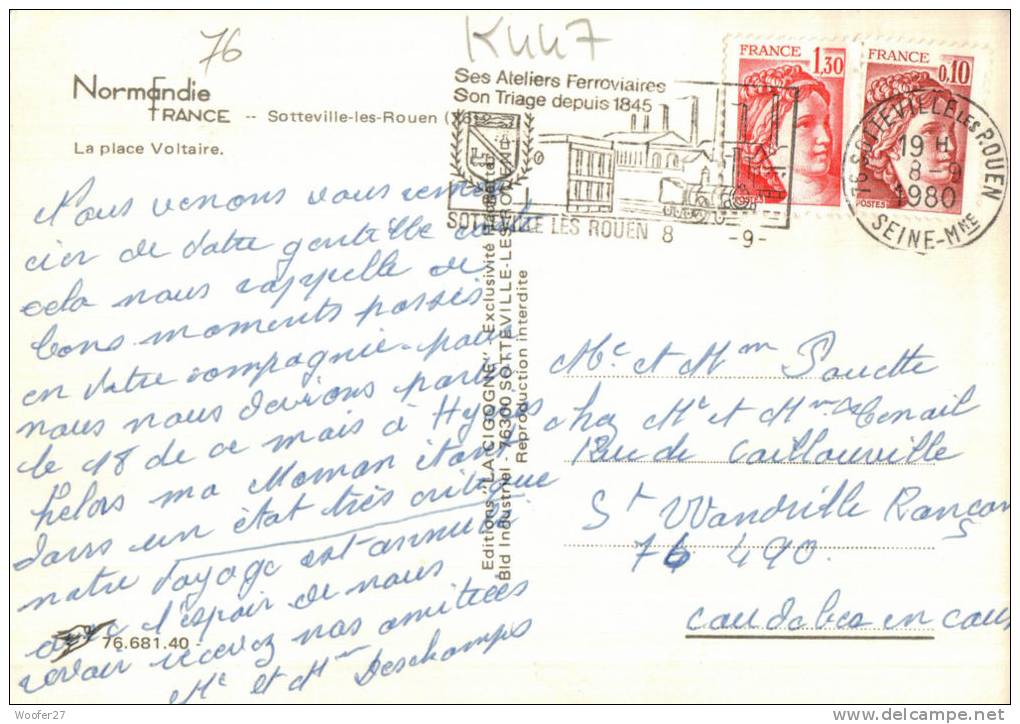 76
K447
Normandie
FRANCE -- Sotteville-les-Rouen (76)
La place Voltaire.
Ses Ateliers Ferroviaires
Son Triage depuis 1845
SOTTEVILLE LES ROUEN 8 -9-
FRANCE 1,30
POSTES
FRANCE 0,10
POSTES
76 SOTTEVILLE Les ROUEN
19 H
8 -9
1980
SEINE-Mme
Nous venons vous remer
cier de votre gentille carte
cela nous rappelle de
bons moments passés
en votre compagnie
nous nous devions partir
le 18 de ce mois à Hyères
hélors ma Moman étant
dans un état très critique
notre voyage est annulé
avec l'espoir de nous
revoir recevez nos amitiées
Mr et Mm Deschamps
Editions "LA CIGOGNE" - Exclusivité
Bld Industriel - 76300 SOTTEVILLE-LES-ROUEN
Reproduction interdite
Mr et Mm
chez Mr et Mm
Rue de Caillouville
St Wandrille Rançon
76 490.
caudebec en caux
76.681.40
Woofer27
delcampe.net